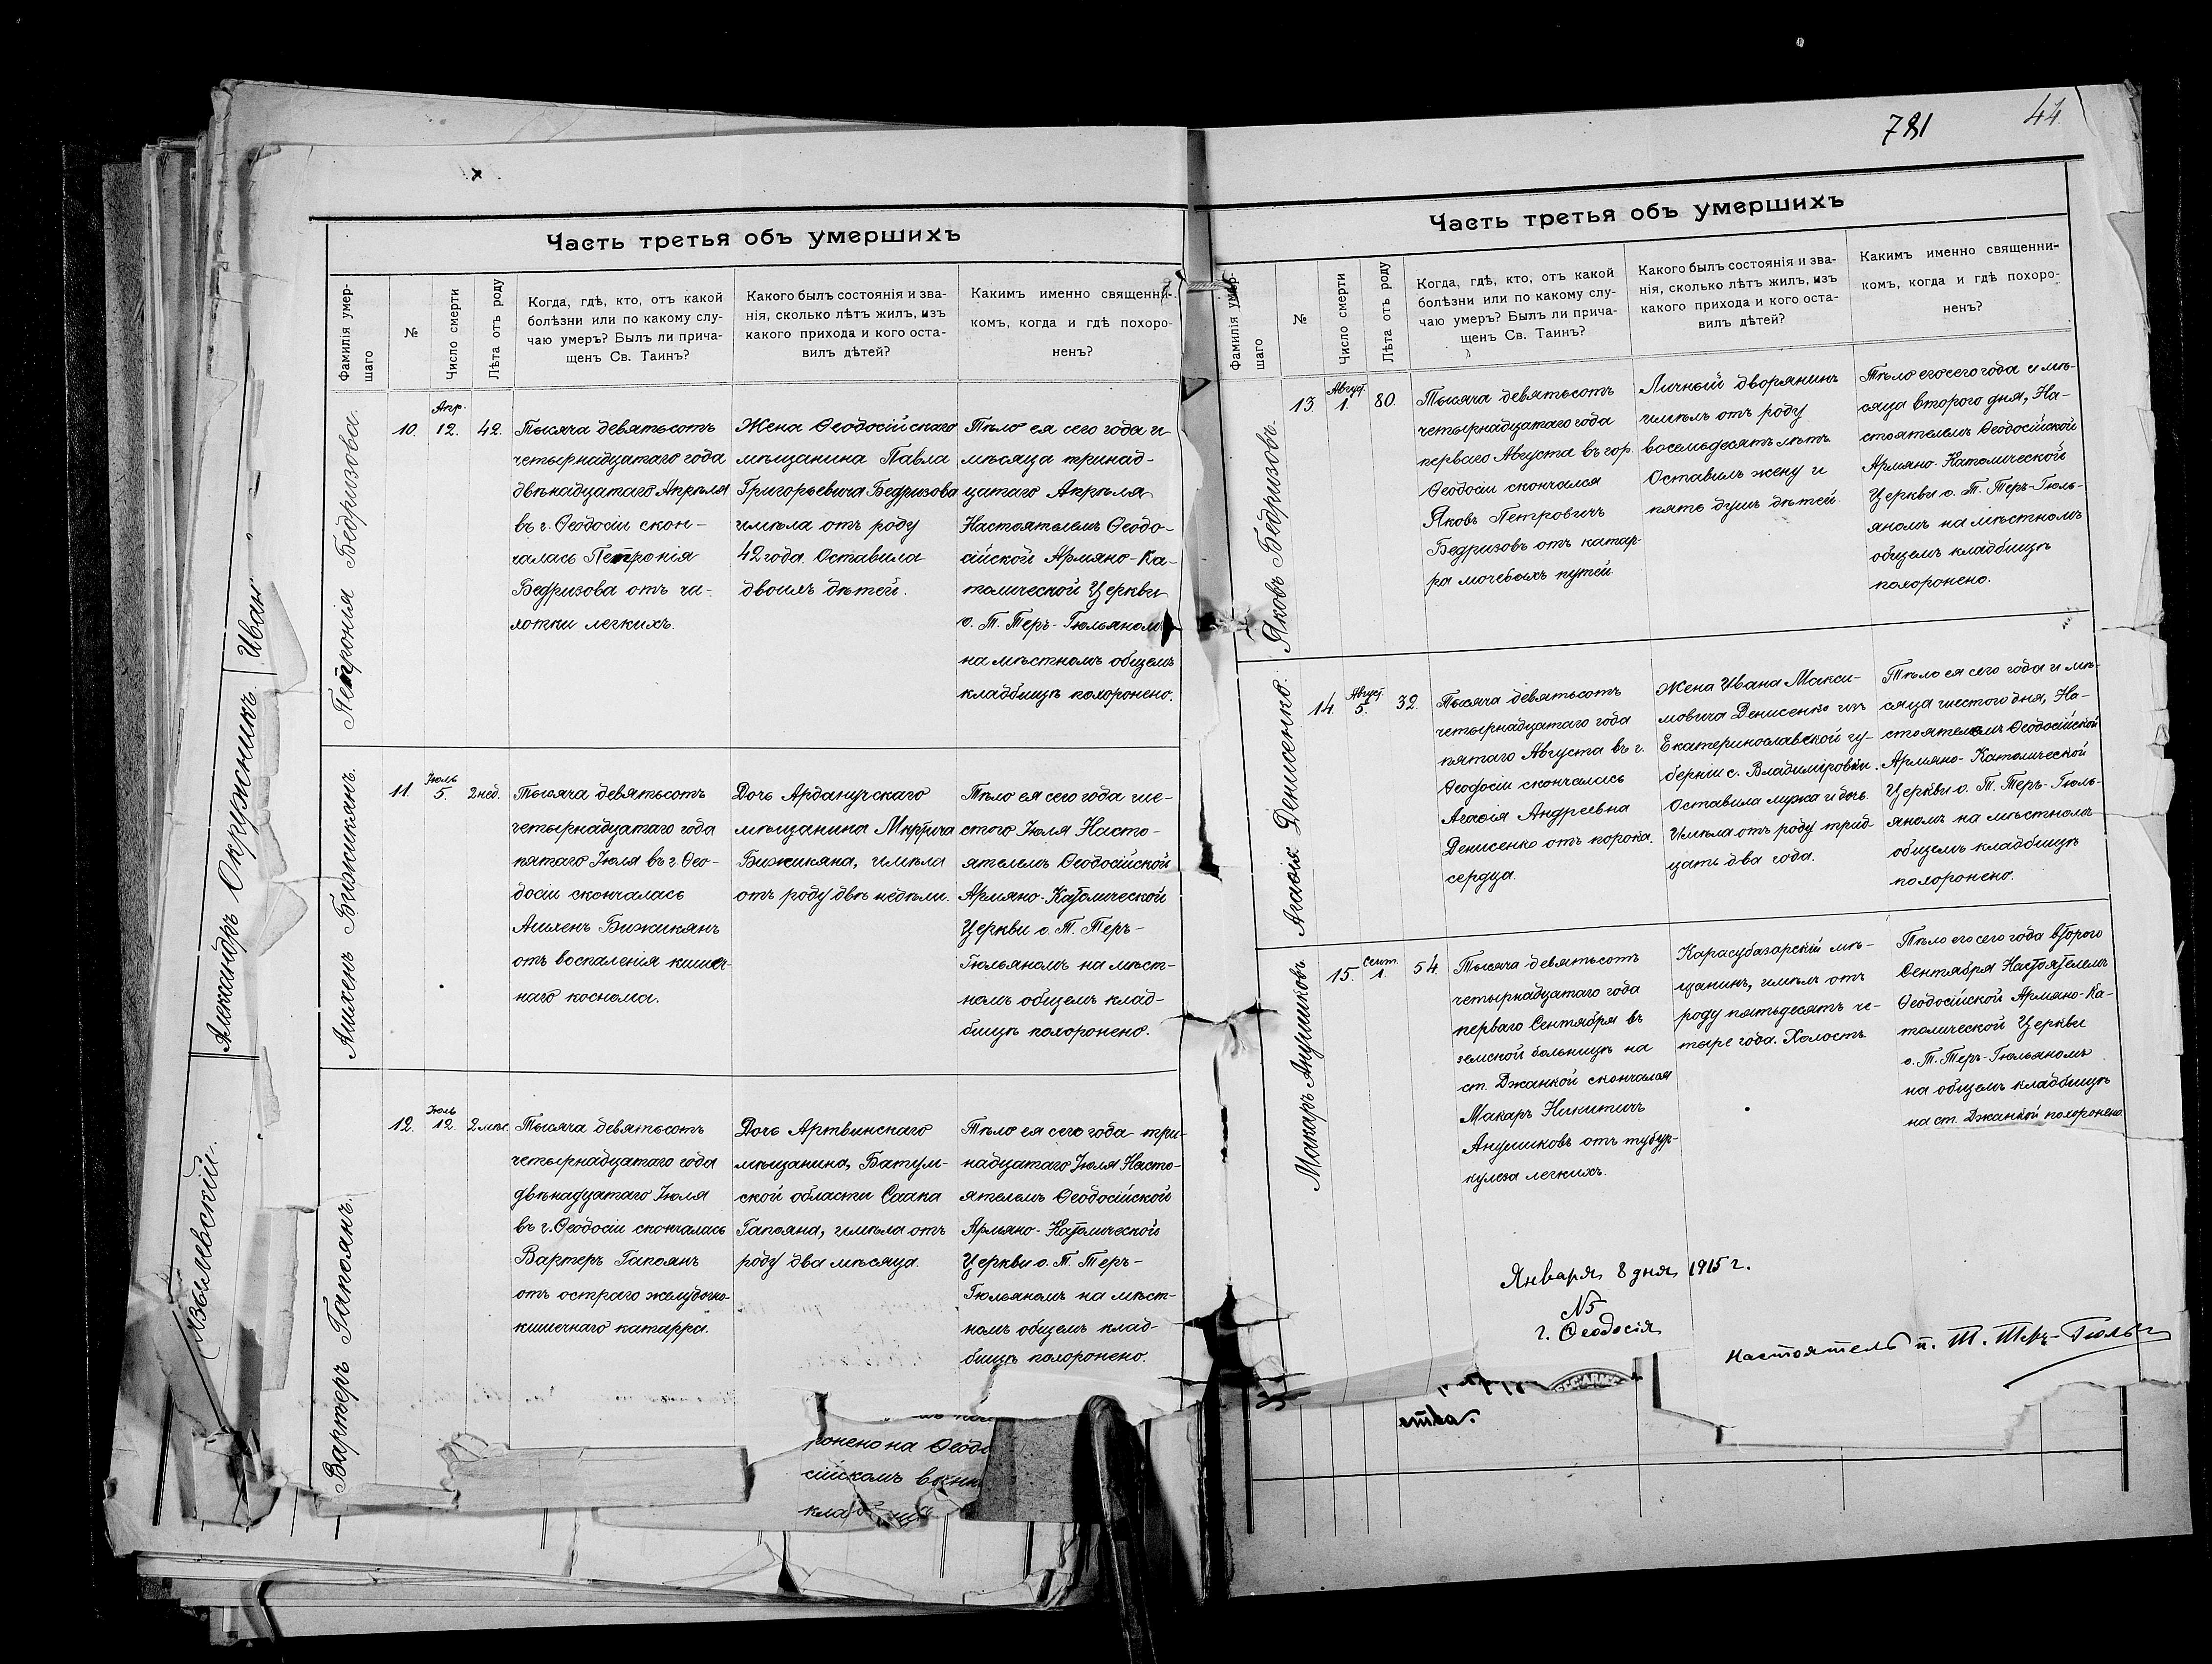 781
44.
Часть третья объ умершихъ
Фамилія умер-
шаго
№
Число смерти
Лѣта отъ роду
Когда, гдѣ, кто, отъ какой
болѣзни или по какому слу-
чаю умеръ? Былъ ли прича-
щенъ Св. Таинъ?
Какого былъ состоянія и зва-
нія, сколько лѣтъ жилъ, изъ
какого прихода и кого оста-
вилъ дѣтей?
Какимъ именно священни-
комъ, когда и гдѣ похоро-
ненъ?
Петронія Бедризова.
10.
Апр.
12.
42.
Тысяча девятьсотъ
четырнадцатаго года
двѣнадцатаго Апрѣля
въ г. Ѳеодосіи скон-
чалась Петронія
Бедризова отъ ча-
хотки легкихъ.
Жена Ѳеодосійскаго
мѣщанина Павла
Григорьевича Бедризова
имѣла отъ роду
42 года. Оставила
двоимъ дѣтей.
Тѣло ея сего года и
мѣсяца тринад-
цатаго Апрѣля
Настоятелемъ Ѳеодо-
сійской Армяно-Ка-
толической Церкви
о. Т. Теръ-Гюльяномъ
на мѣстномъ общемъ
кладбищѣ похоронено.
Амихенъ Бижикянъ.
11.
Іюль
5.
2 нед.
Тысяча девятьсотъ
четырнадцатаго года
пятаго Іюля въ г. Ѳео-
досіи скончалась
Амихенъ Бижикянъ
отъ воспаленія кишеч-
наго
Дочь Арданучскаго
мѣщанина Мкртича
Бижикяна, имѣла
отъ роду двѣ недѣли.
Тѣло ея сего года ше-
стого Іюля Насто-
ятелемъ Ѳеодосійской
Армяно-Католической
Церкви о. Т. Теръ-
Гюльяномъ на мѣст-
номъ общемъ клад-
бищѣ похоронено.
Вартеръ Гапоянъ.
12.
Іюль
12.
2 мѣс.
Тысяча девятьсотъ
четырнадцатаго года
двѣнадцатаго Іюля
въ г. Ѳеодосіи скончалась
Вартеръ Гапоянъ
отъ остраго желудочно-
кишечнаго катарра.
Дочь Артвинскаго
мѣщанина, Батум-
ской области Саака
Гапояна, имѣла отъ
роду два мѣсяца.
Тѣло ея сего года три-
надцатаго Іюля Насто-
ятелемъ Ѳеодосійской
Армяно-Католической
Церкви о. Т. Теръ-
Гюльяномъ на мѣст-
номъ общемъ клад-
бищѣ похоронено.
Александръ Окружникъ.
Иванъ
ронено на Ѳеодо
сійскомъ
Часть третья объ умершихъ
Фамилія умер-
шаго
№
Число смерти
Лѣта отъ роду
Когда, гдѣ, кто, отъ какой
болѣзни или по какому слу-
чаю умеръ? Былъ ли прича-
щенъ Св. Таинъ?
Какого былъ состоянія и зва-
нія, сколько лѣтъ жилъ, изъ
какого прихода и кого оста-
вилъ дѣтей?
Какимъ именно священни-
комъ, когда и гдѣ похоро-
ненъ?
Яковъ Бедризовъ.
13.
Август.
1.
80.
Тысяча девятьсотъ
четырнадцатаго года
перваго Августа въ гор.
Ѳеодосіи скончался
Яковъ Петровичъ
Бедризовъ отъ катар-
ра мочевыхъ путей
Личный дворянинъ
имѣлъ отъ роду
восемьдесятъ лѣтъ.
Оставилъ жену и
пять душъ дѣтей.
Тѣло его сего года и мѣ-
сяца второго дня, На-
стоятелемъ Ѳеодосійской
Армяно-Католической
Церкви о. Т. Теръ-Гюль-
яномъ на мѣстномъ
общемъ кладбищѣ
похоронено.
Агаѳія Денисенко.
14.
Август.
5.
32.
Тысяча девятьсотъ
четырнадцатаго года
пятаго Августа въ г.
Ѳеодосіи скончалась
Агаѳія Андреевна
Денисенко отъ порока
сердца.
Жена Ивана Макси-
мовича Денисенко изъ
Екатеринославской гу-
берніи с. Владиміровки.
Оставила мужа и дочь.
Имѣла отъ роду трид-
цать два года.
Тѣло ея сего года и мѣ-
сяца шестого дня, На-
стоятелемъ Ѳеодосійской
Армяно-Католической
Церкви о. Т. Теръ-Гюль-
яномъ на мѣстномъ
общемъ кладбищѣ
похоронено.
Макаръ Анушиковъ
15.
Сент.
1.
54.
Тысяча девятьсотъ
четырнадцатаго года
перваго Сентября въ
земской больницѣ на
ст. Джанкой скончался
Макаръ Никитичъ
Анушиковъ отъ тубур-
кулеза легкихъ.
Карасубазарскій мѣ-
щанинъ, имѣлъ отъ
роду пятьдесятъ че-
тыре года. Холостъ
Тѣло его сего года второго
Сентября Настоятелемъ
Ѳеодосійской Армяно-Ка-
толической Церкви
о. Т. Теръ-Гюльяномъ
на общемъ кладбищѣ
на ст. Джанкой похоронено.
Января 8 дня 1915 г.
№5
г. Ѳеодосія
Настоятель п. Т. Теръ-Гюль
ства.